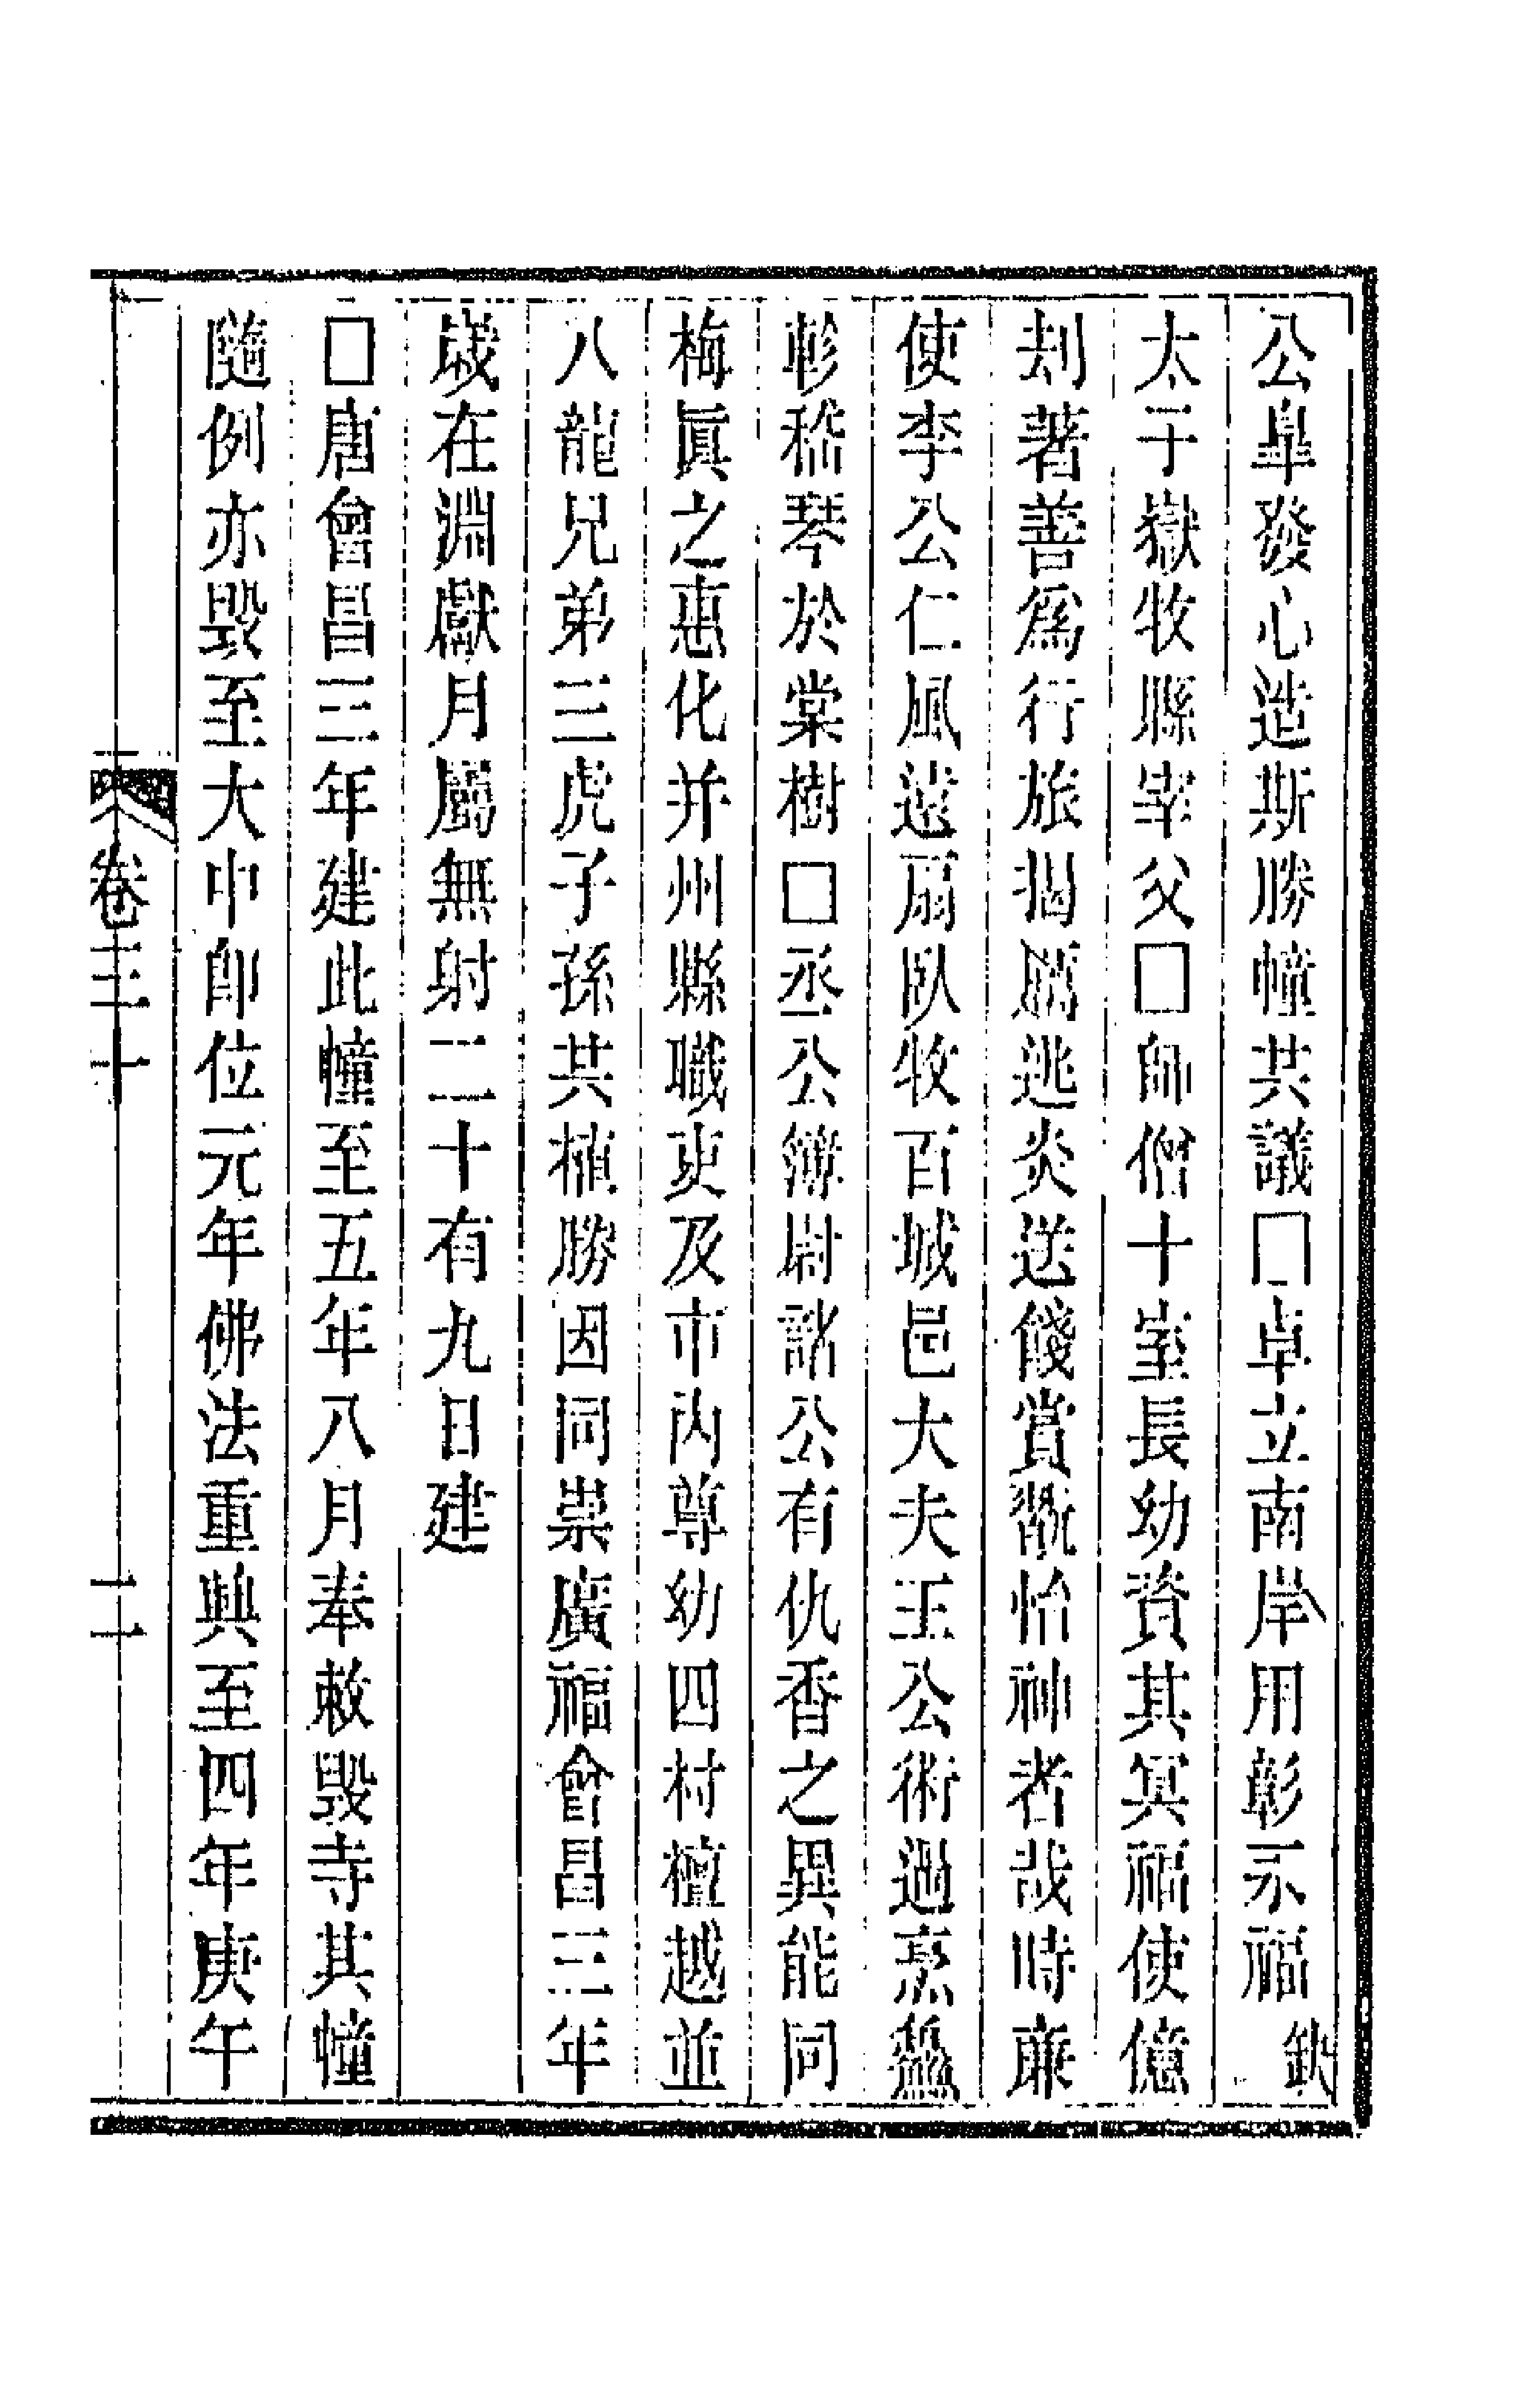 公皐發心造斯勝幢共議□卓立南岸用彰示福 缺
太于嶽牧縣宰父□師僧十室長幼資其冥福使億
刦著善爲行旅揭厲逃炎送餞賞翫怡神者哉時廉
使李公仁風遠扇臥牧百城邑大夫王公術過烹鱻
軫稌琴於棠樹□丞公簿尉諸公有仇香之異能同
梅眞之惠化并州縣職吏及市內尊幼四村檀越並
八龍兄弟三虎子孫共植勝因同崇廣福會昌三年
歲在淵獻月屬無射二十有九日建
□唐會昌三年建此幢至五年八月奉敕毀寺其幢
隨例亦毀至大中卽位元年佛法重興至四年庚午
卷三十 二十